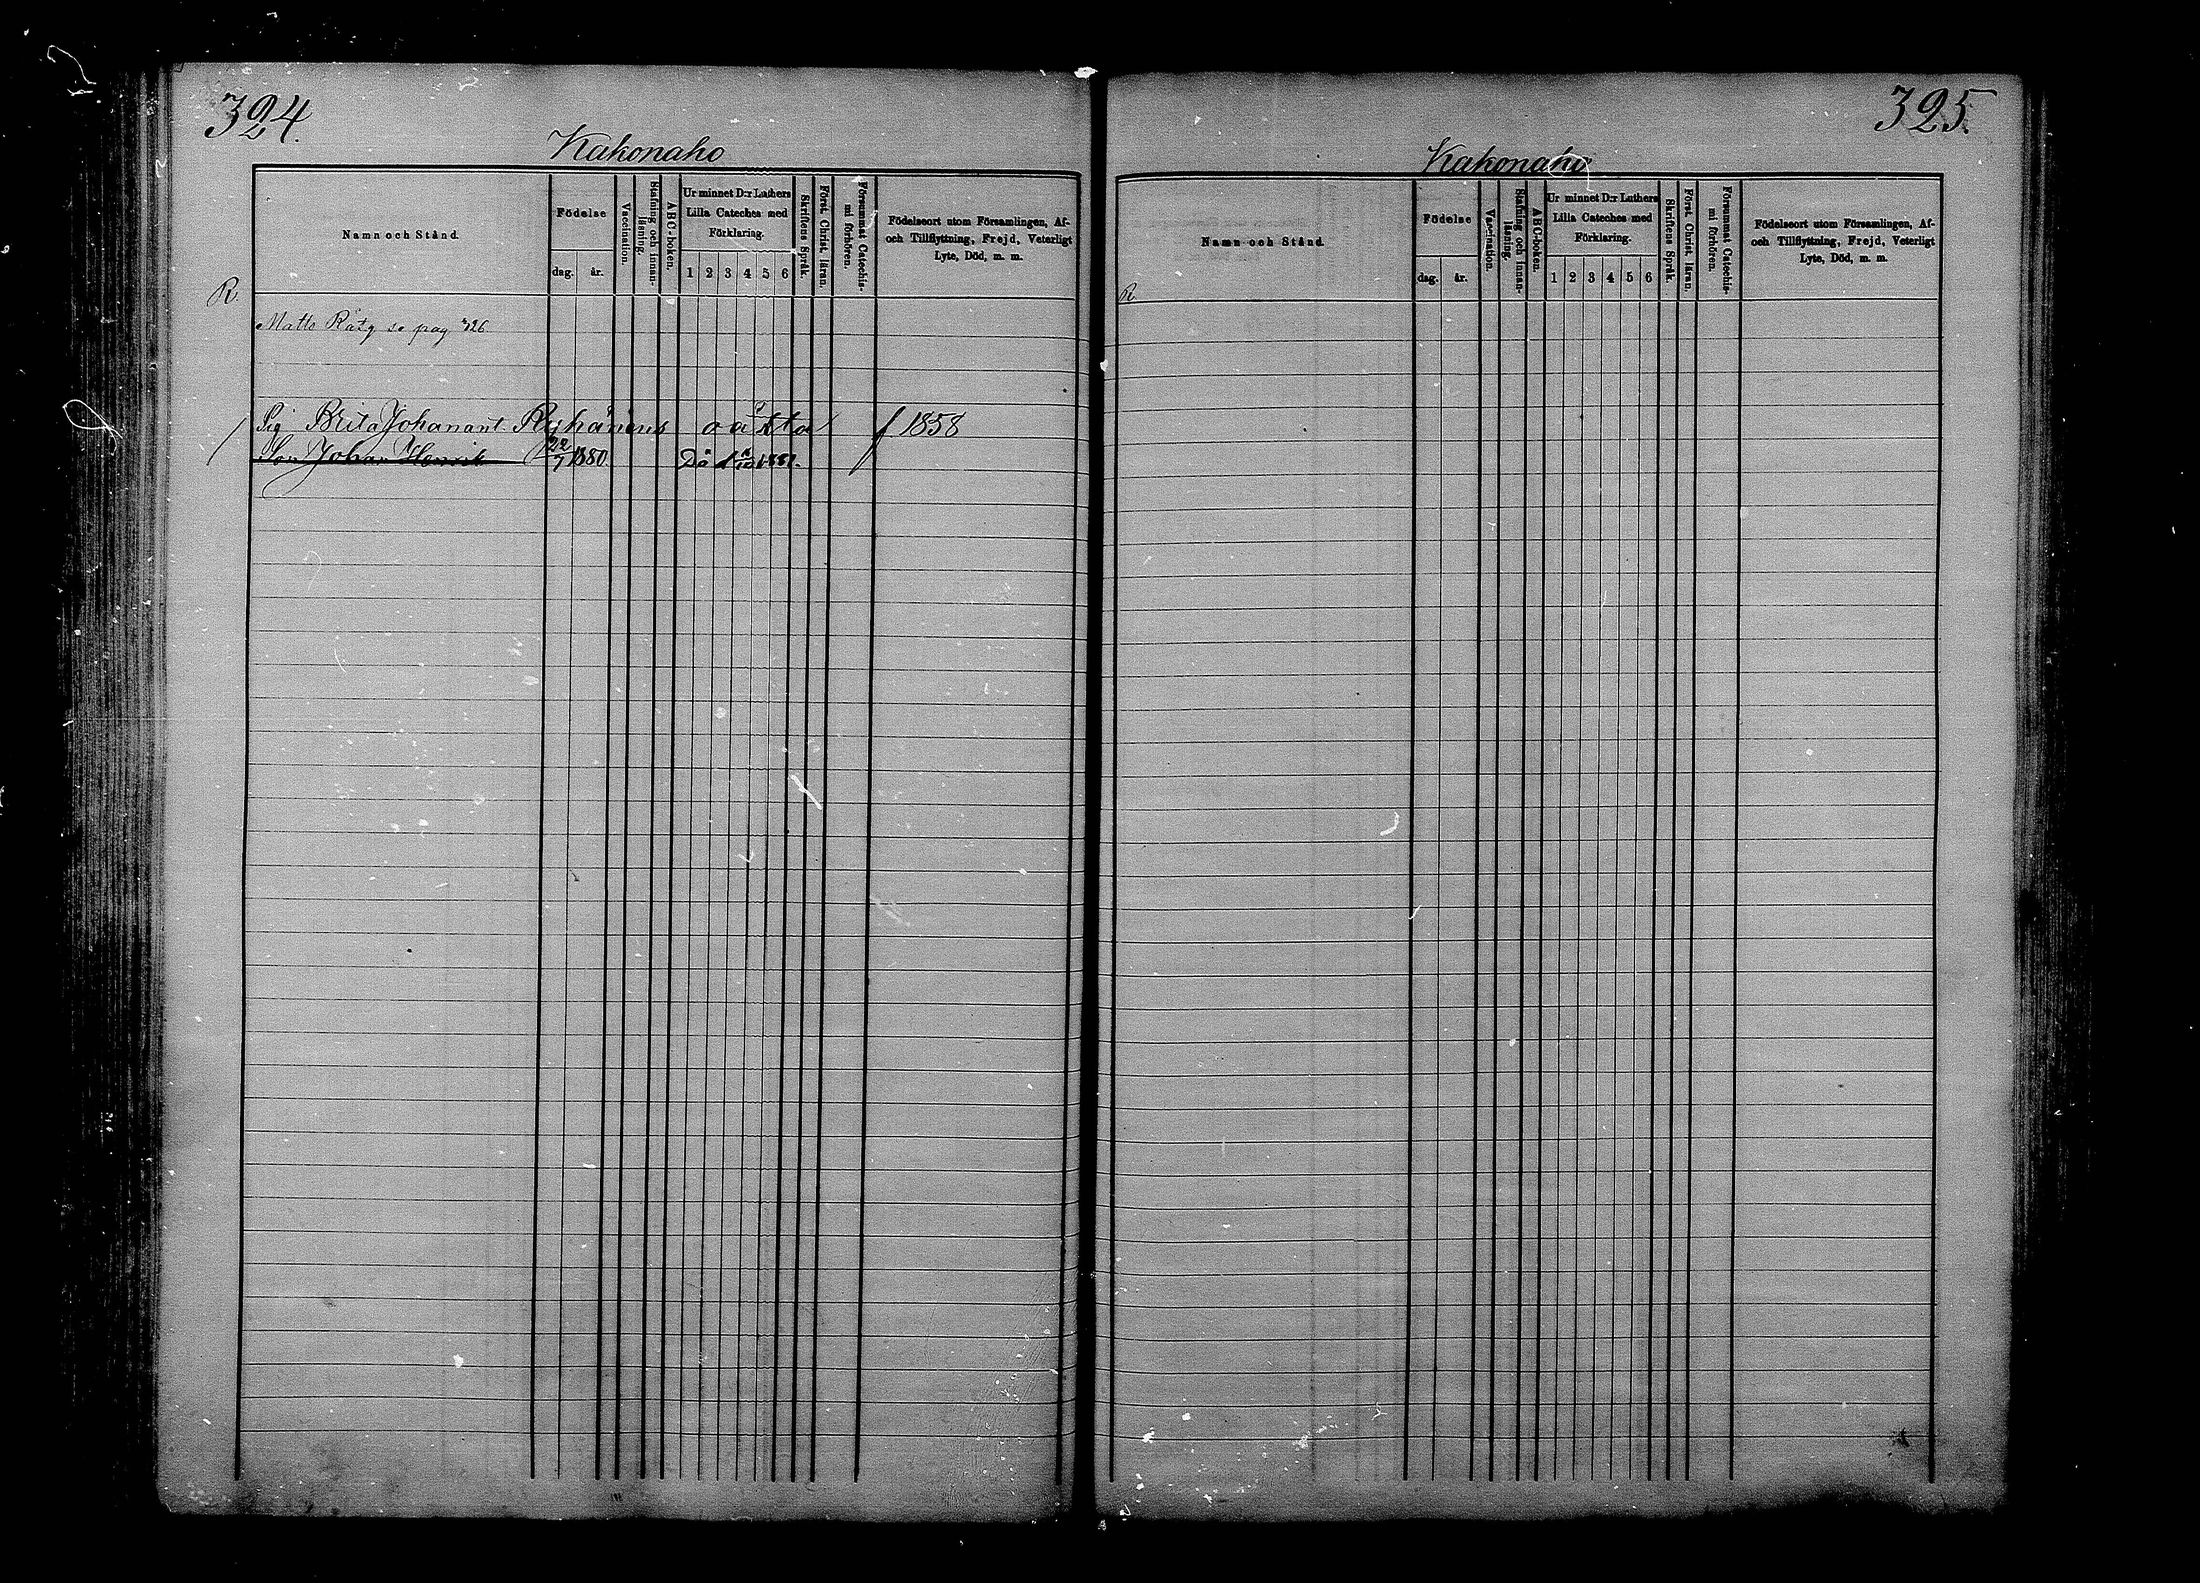 324.
Kakonaho
Namn och Stånd.
Födelse
dag. år.
Vaccination.
Stafning och innan-
läsning.
ABC-boken.
Ur minnet D:r Luthers
Lilla Cateches med
Förklaring.
1 2 3 4 5 6
Skriftens Språk.
Först. Christ. läran.
Försummat Catechis-
mi förhören.
Födelseort utom Församlingen, Af-
och Tillflyttning, Frejd, Veterligt
Lyte, Död, m. m.
R.
Matts Räty se pag 326
Pig Brita Johanant. Ryhänens oäkta f 1858
Son Johan Henrik 22/7 1880. Dö
325.
Kakonaho
Namn och Stånd.
Födelse
dag. år.
Vaccination.
Stafning och innan-
läsning.
ABC-boken.
Ur minnet D:r Luthers
Lilla Cateches med
Förklaring.
1 2 3 4 5 6
Skriftens Språk.
Först. Christ. läran.
Försummat Catechis-
mi förhören.
Födelseort utom Församlingen, Af-
och Tillflyttning, Frejd, Veterligt
Lyte, Död, m. m.
R.